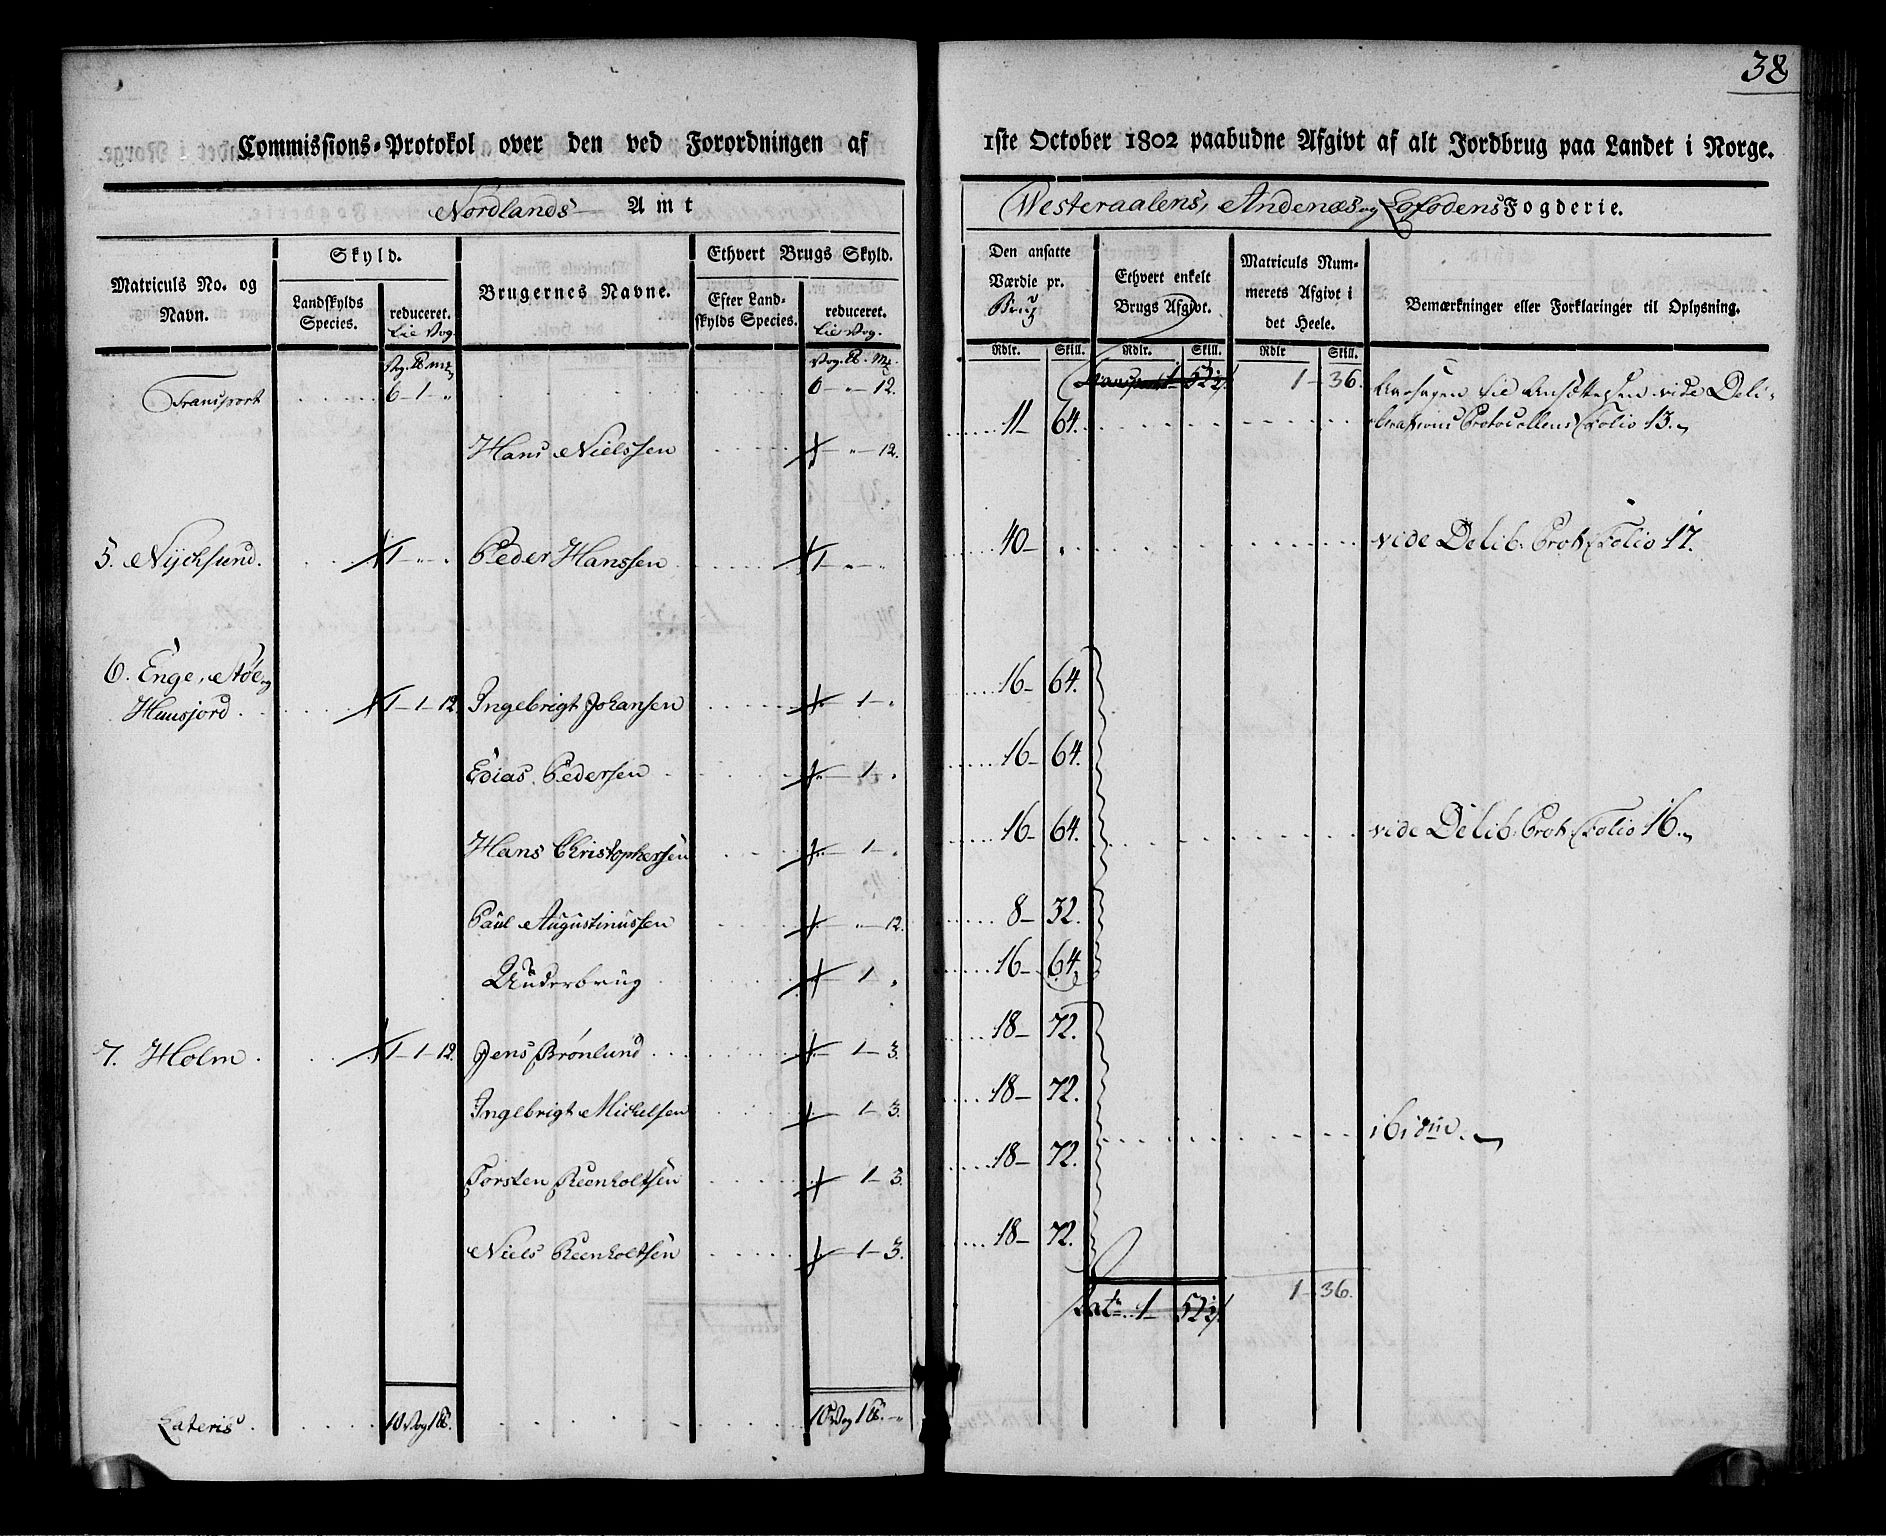 38
Commissions-Protokol over den ved Forordningen af 1ste October 1802 paabudne Afgivt af alt Jordbrug paa Landet i Norge.
Nordlands Amt Westeraalens, Andenæs og Lofodens Fogderie.
Matriculs No. og Navn. Skyld. Landskylds Species. reduceret. Brugernes Navne. Ethvert Brugs Skyld. Efter Landskylds Species. reduceret. Den ansatte Værdie pr. Brug Ethvert enkelt Brugs Afgivt. Matriculs Nummerets Afgivt i det Heele. Bemærkninger eller Forklaringer til Oplysning.
Rdlr. Skill. Rdlr. Skill. Rdlr Skill.
Transport 6 - 1 - " 6 - " - 12. Transport 1 1 - 36. Aarsagen til Ansættelsen vide Deli-
Hans Nielssen " - 12. 11 - 64. berations Protocollens Folio 13.
5. Nycksund. 1 - " - " Peder Hanssen 1 - " - " 40 - " vide Delib. Prot. Folio 17.
6. Enge, Støe og
Huusjord 1 - 1 - 12. Ingebrigt Johansen 1 - " 16 - 64.
Edias Pedersen 1 " 16 - 64.
Hans Christophersen 1 - " 16 - 64. vide Delib. Prot. Folio 16.
Paul Augustinussen " - 12. 8 - 32.
Underbrug 1 " 16 - 64.
7. Holm 1 - 1 - 12. Jens Brønlund 1 - 3. 18 - 72.
Ingebrigt Mickelsen 1 - 3. 18 - 72. ibidem.
Torsten Reenholtsen 1 - 3. 18 - 72.
Niels Reenholtsen 1 - 3. 18 - 72.
Lat. 1 1 - 36.
Lateris 10 Vog 1 10 Vog 1